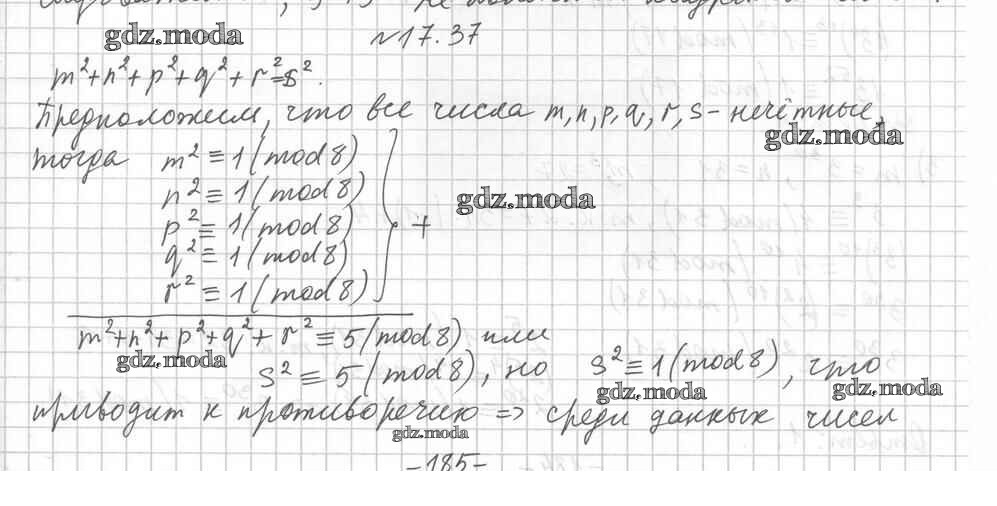 gdz.moda
№17.37
m²+n²+p²+q²+r²=s².
Предположим, что все числа m,n,p,q,r,s – нечётные,
gdz.moda
тогда m² ≡ 1 (mod 8)
n² ≡ 1 (mod 8)
gdz.moda
p² ≡ 1 (mod 8) +
q² ≡ 1 (mod 8)
r² ≡ 1 (mod 8)
m²+n²+p²+q²+r² ≡ 5 (mod 8) или
gdz.moda
s² ≡ 5 (mod 8), но s² ≡ 1 (mod 8), что
gdz.moda
gdz.moda
приводит к противоречию => среди данных чисел
gdz.moda
-185-